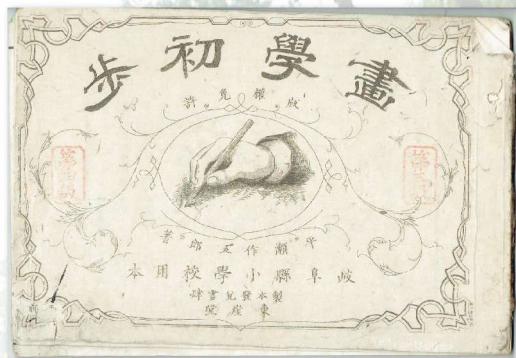 畫學初步
版權免許
平瀨作五郎著
岐阜縣小學校用本
製本發兌書肆
東崖